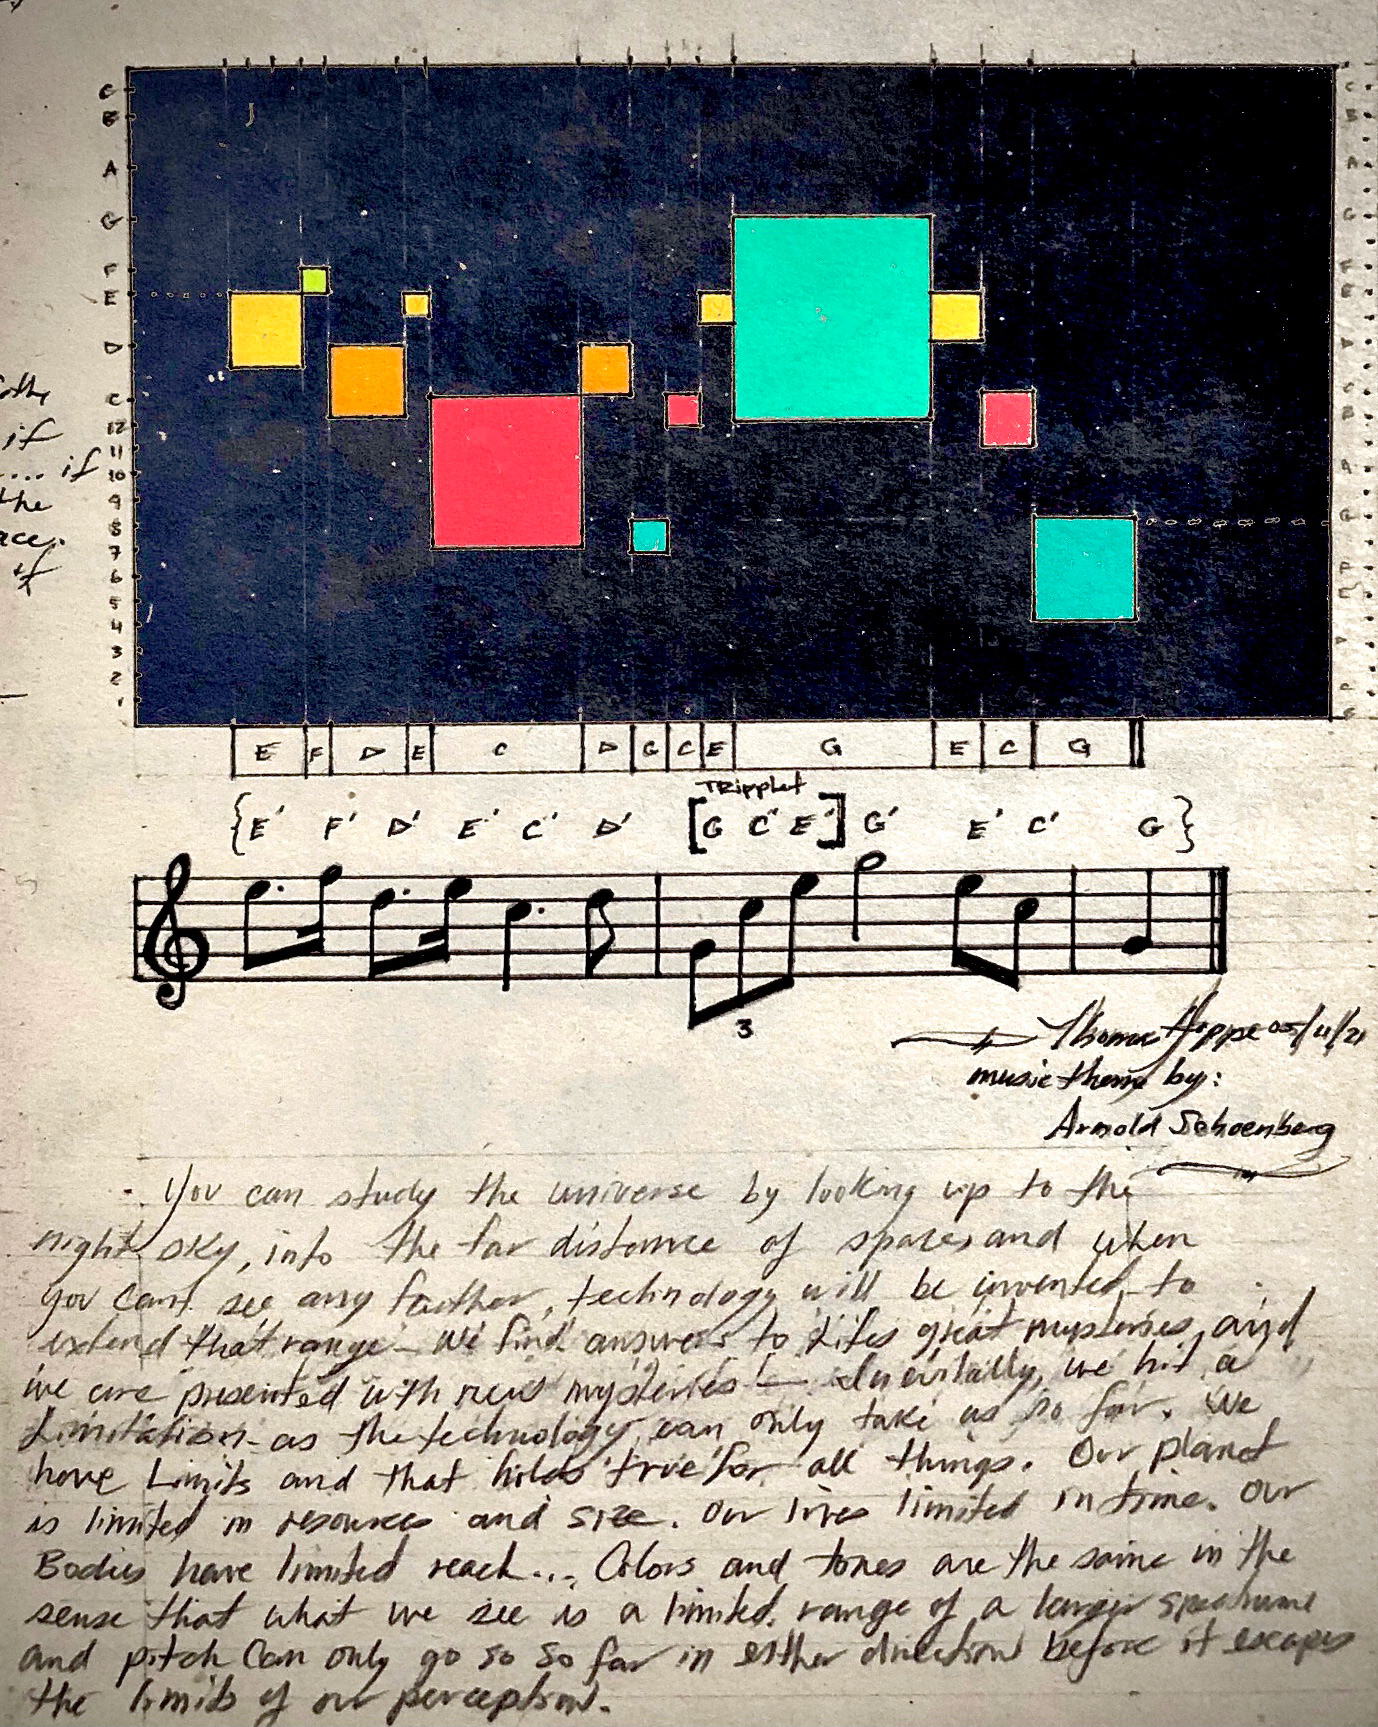 C
B
A
G
F
E
D
C
12
11
10
9
8
7
6
5
4
3
2
1
the
if
.... if
the
ace.
if
E F D E C D G C E G E C G
Tripplet
{E' F' D' E' C' D' [G C' E'] G' E' C' G}
3
Thomas Hoppe 05/11/21
music theme by:
Arnold Schoenberg
You can study the universe by looking up to the
night sky, into the far distance of space, and when
you cant see any farther, technology will be invented to
extend that range - We find answers to Lifes great mysteries, and
we are presented with new mysteries! — Inevitably, we hit a
Limitation - as the technology can only take us so far. We
have Limits and that holds true for all things. Our planet
is limited in resources and size. Our lives limited in time. Our
Bodies have limited reach... Colors and tones are the same in the
sense that what we see is a limited range of a larger spectrume
and pitch can only go so so far in either direction before it escapes
the limits of our perception.